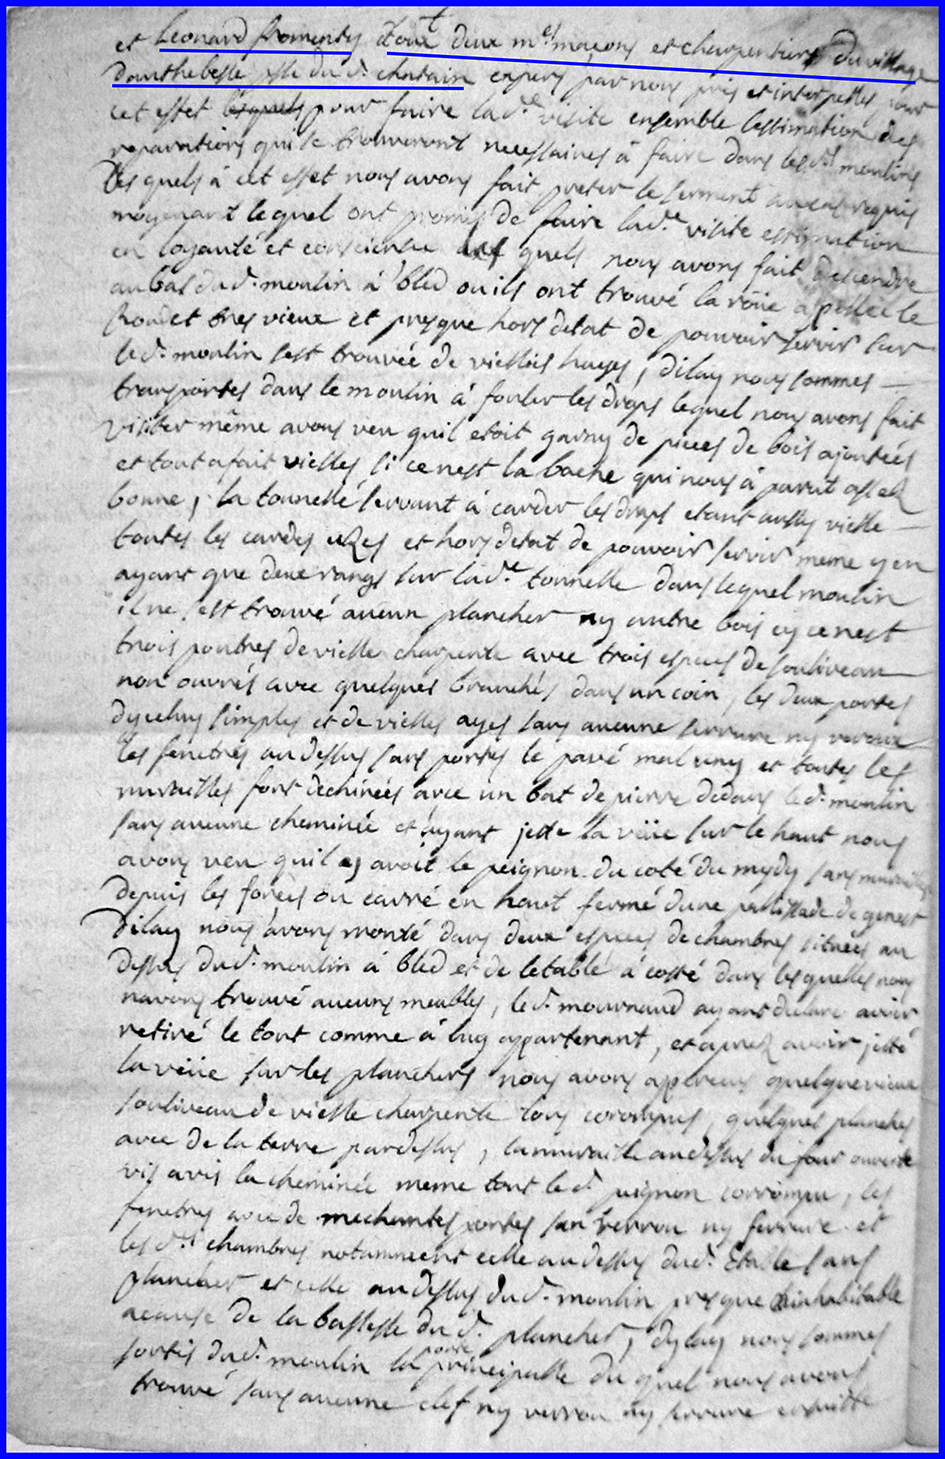 et Leonard fromenty tous deux mes. maçons et charpentiers du village
danthebesse psse du d. chatain expers par nous pris et interpelles pour
cet effet pour faire lad.e visite ensemble lestimation des
reparations quil se trouveront necessaires à faire dans lesd. moulins
les quels à cet effet nous avons fait preter le serment au cas requis
moyenant lequel ont promis de faire lad.e visite estimation
en loyauté et conscience quels nous avons fait descendre
au bas dud. moulin à bled ou ils ont trouvé la roüe apellée le
roudet tres vieux et presque hors detat de pouvoir servir sur
led. moulin sest trouvée de vieilles hayes, dilay nous sommes
transportes dans le moulin à fouler les draps lequel nous avons fait
visitter même avons veu quil etoit garny de pieces de bois ajoutées
et tout afait vielles si ce nest la bache qui nous à parut assez
bonne, la tounelle servant à carder les draps etant aussy vielle
toutes les cardes uzes et hors detat de pouvoir servir meme y en
ayant que deux rangs sur lad.e tounelle dans lequel moulin
il ne sest trouvé aucun plancher ny autre bois sy ce nest
trois poutres de vielle charpente avec trois especes de souliveau
non ouvrés avec quelques branches dans un coin, les deux portes
dycelluy simples et de vielles ayes sans aucune serrure ny veroux
les fenetres au dessus sans portes le pavé mal uny et toutes les
murailles fort dechinées avec un bat de pierre dedans led. moulin
sans aucune cheminée et ayant jetté la veüe sur le haut nous
avons veu quil y avoit le peignon du coté du mydy sans muraille
depuis les forces ou carré en haut fermé dune pallissade de genest
Dilay nous avons monté dans deux especes de chambres situées au
dessus dud. moulin à bled et de letable à costé dans lesquelles nous
navons trouvé aucuns meubles, led. mournaud ayant declaré avoir
retiré le tout comme à luy appartenant, et aprez avoir jetté
la veüe sur les planchers nous avons apperceu quelque vieux
souliveau de vielle charpente tous corompus, quelques planches
avec de la terre pardessus, la muraille au dessus du four ouverte
vis avis la cheminée meme tout led. peignon corrompu, les
fenetres avec de mechantes portes san verrou ny serrure et
les d.es chambres notamment celle au dessus dud. etable sans
plancher et celle au dessus dud. moulin presque inhabitable
acause de la bassesse dud. plancher, dylay nous sommes
sortis dud. moulin la porte principalle du quel nous avons
trouvé sans aucune clef ny verrou ny serrure